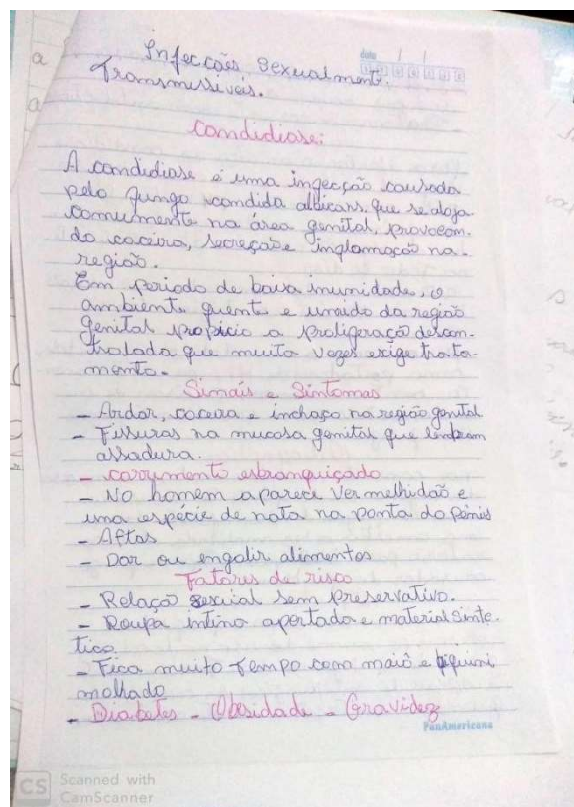 Infecções Sexualment.
Transmissíveis.
data
Candidiase:
A candidiase é uma infecção causada
pelo fungo candida albicans, que se aloja
comumente na área genital, provocan-
do coceira, secreção e inflamação na
região.
Em periodo de baixa imunidade, o
ambiente quente e umido da região
genital propicio a proliferaçã descon-
trolada que muita vezes exige trata-
mento.
Sinais e Sintomas
- Ardor, coceira e inchaço na região genital
- Fissuras na mucosa genital que lembram
assadura.
- corrimento esbranquiçado
- No homem aparece vermelhidão e
uma espécie de nata na ponta do pênis
- Aftas
- Dor ou engolir alimentos
Fatores de risco
- Relaçã sexual sem preservativo.
- Roupa intima apertada e material sinte-
tico.
- Fica muito tempo com maiô e biquini
molhado
- Diabetes - Obesidade - Gravidez
PanAmericana
CS Scanned with
CamScanner